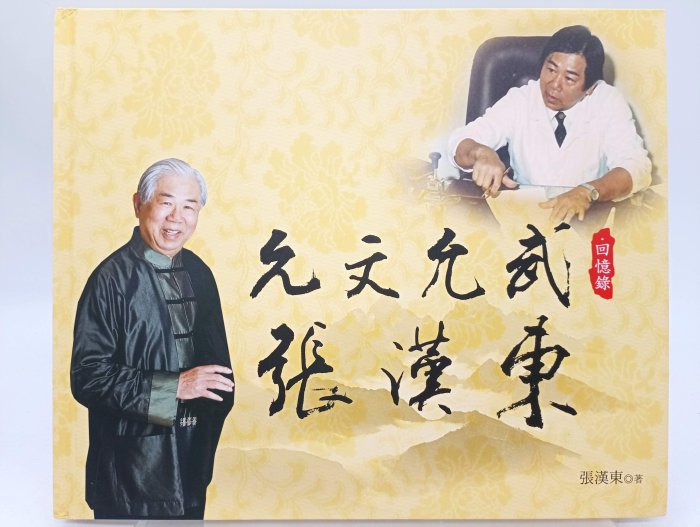 允文允武
回憶錄
張漢東
張漢東◎著